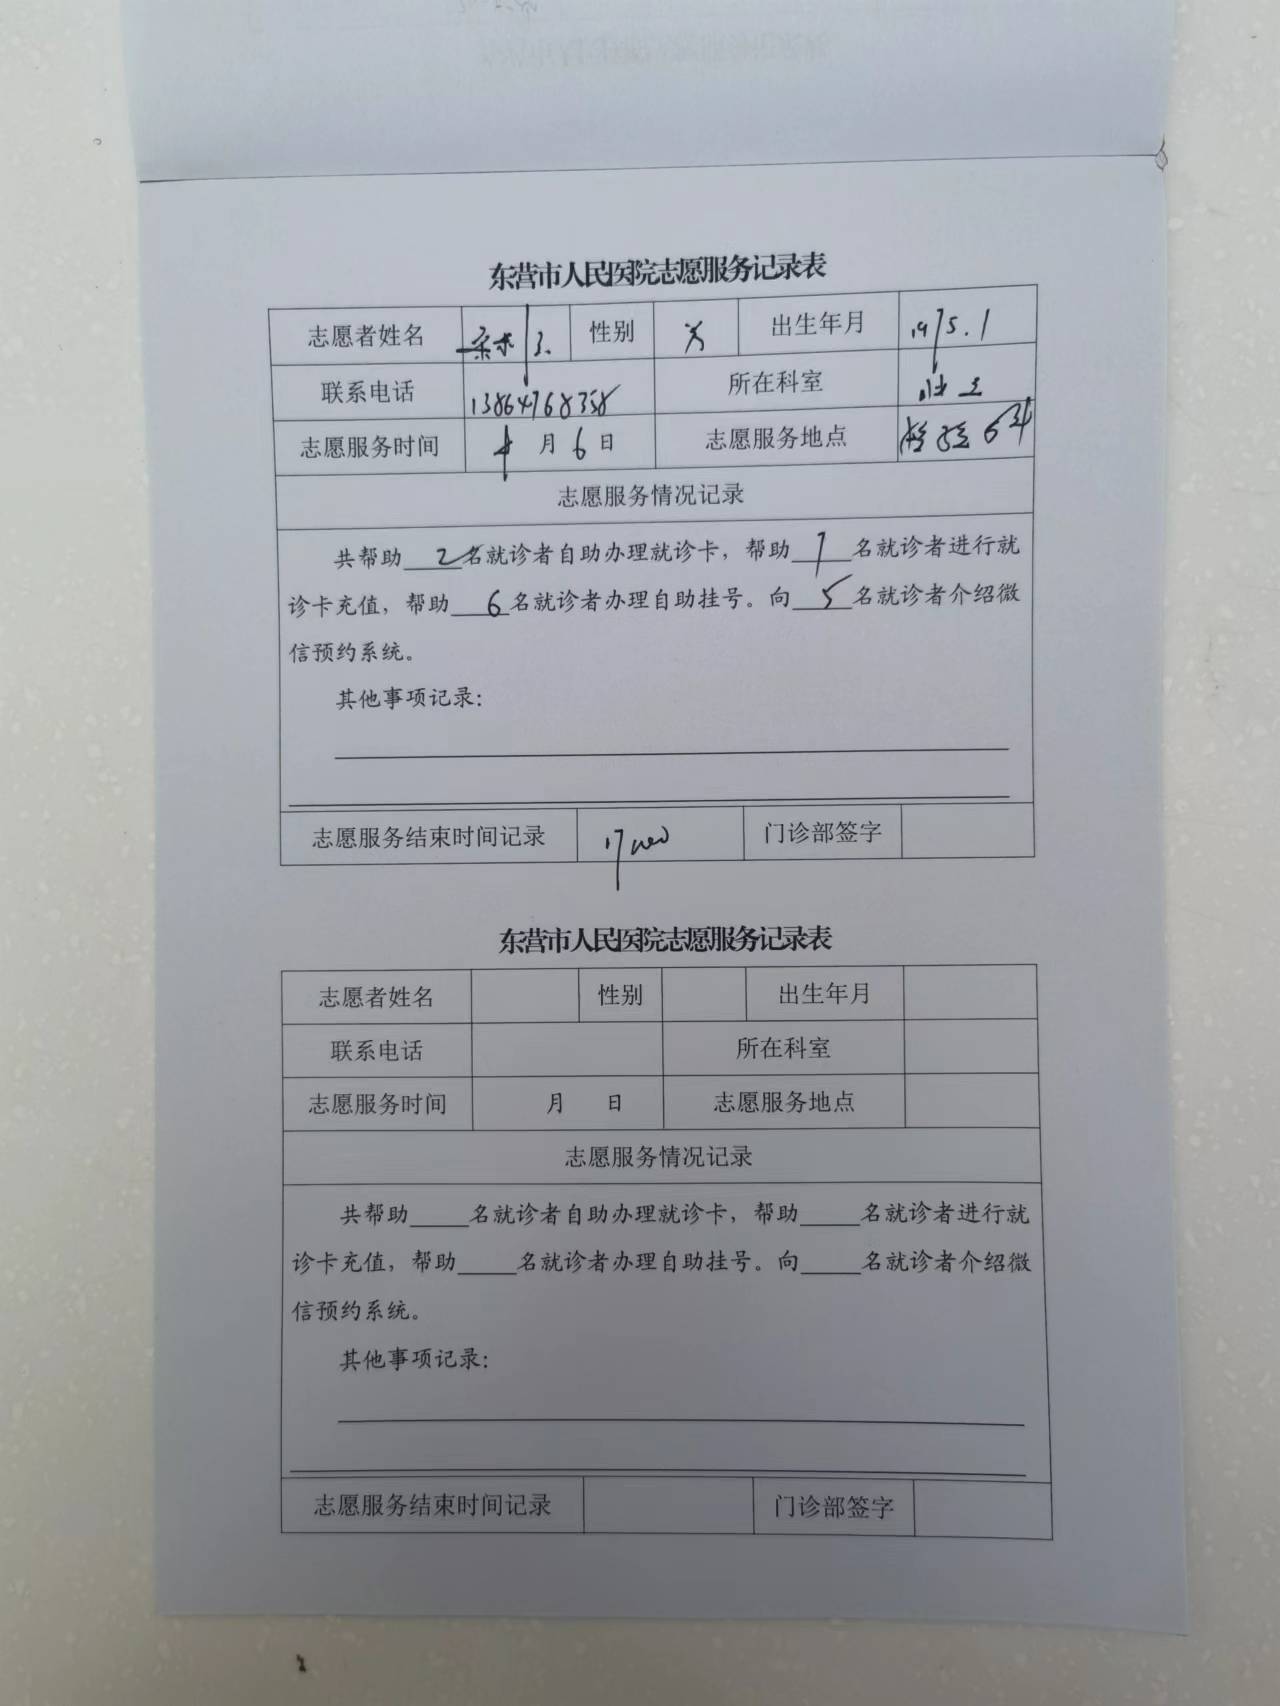 东营市人民医院志愿服务记录表
志愿者姓名 性别 出生年月 1975.1
联系电话 13864768358 所在科室
志愿服务时间 月6日 志愿服务地点
志愿服务情况记录
共帮助2名就诊者自助办理就诊卡，帮助7名就诊者进行就
诊卡充值，帮助6名就诊者办理自助挂号。向5名就诊者介绍微
信预约系统。
其他事项记录：
志愿服务结束时间记录 门诊部签字
东营市人民医院志愿服务记录表
志愿者姓名 性别 出生年月
联系电话 所在科室
志愿服务时间 月 日 志愿服务地点
志愿服务情况记录
共帮助_____名就诊者自助办理就诊卡，帮助_____名就诊者进行就
诊卡充值，帮助_____名就诊者办理自助挂号。向_____名就诊者介绍微
信预约系统。
其他事项记录：
志愿服务结束时间记录 门诊部签字